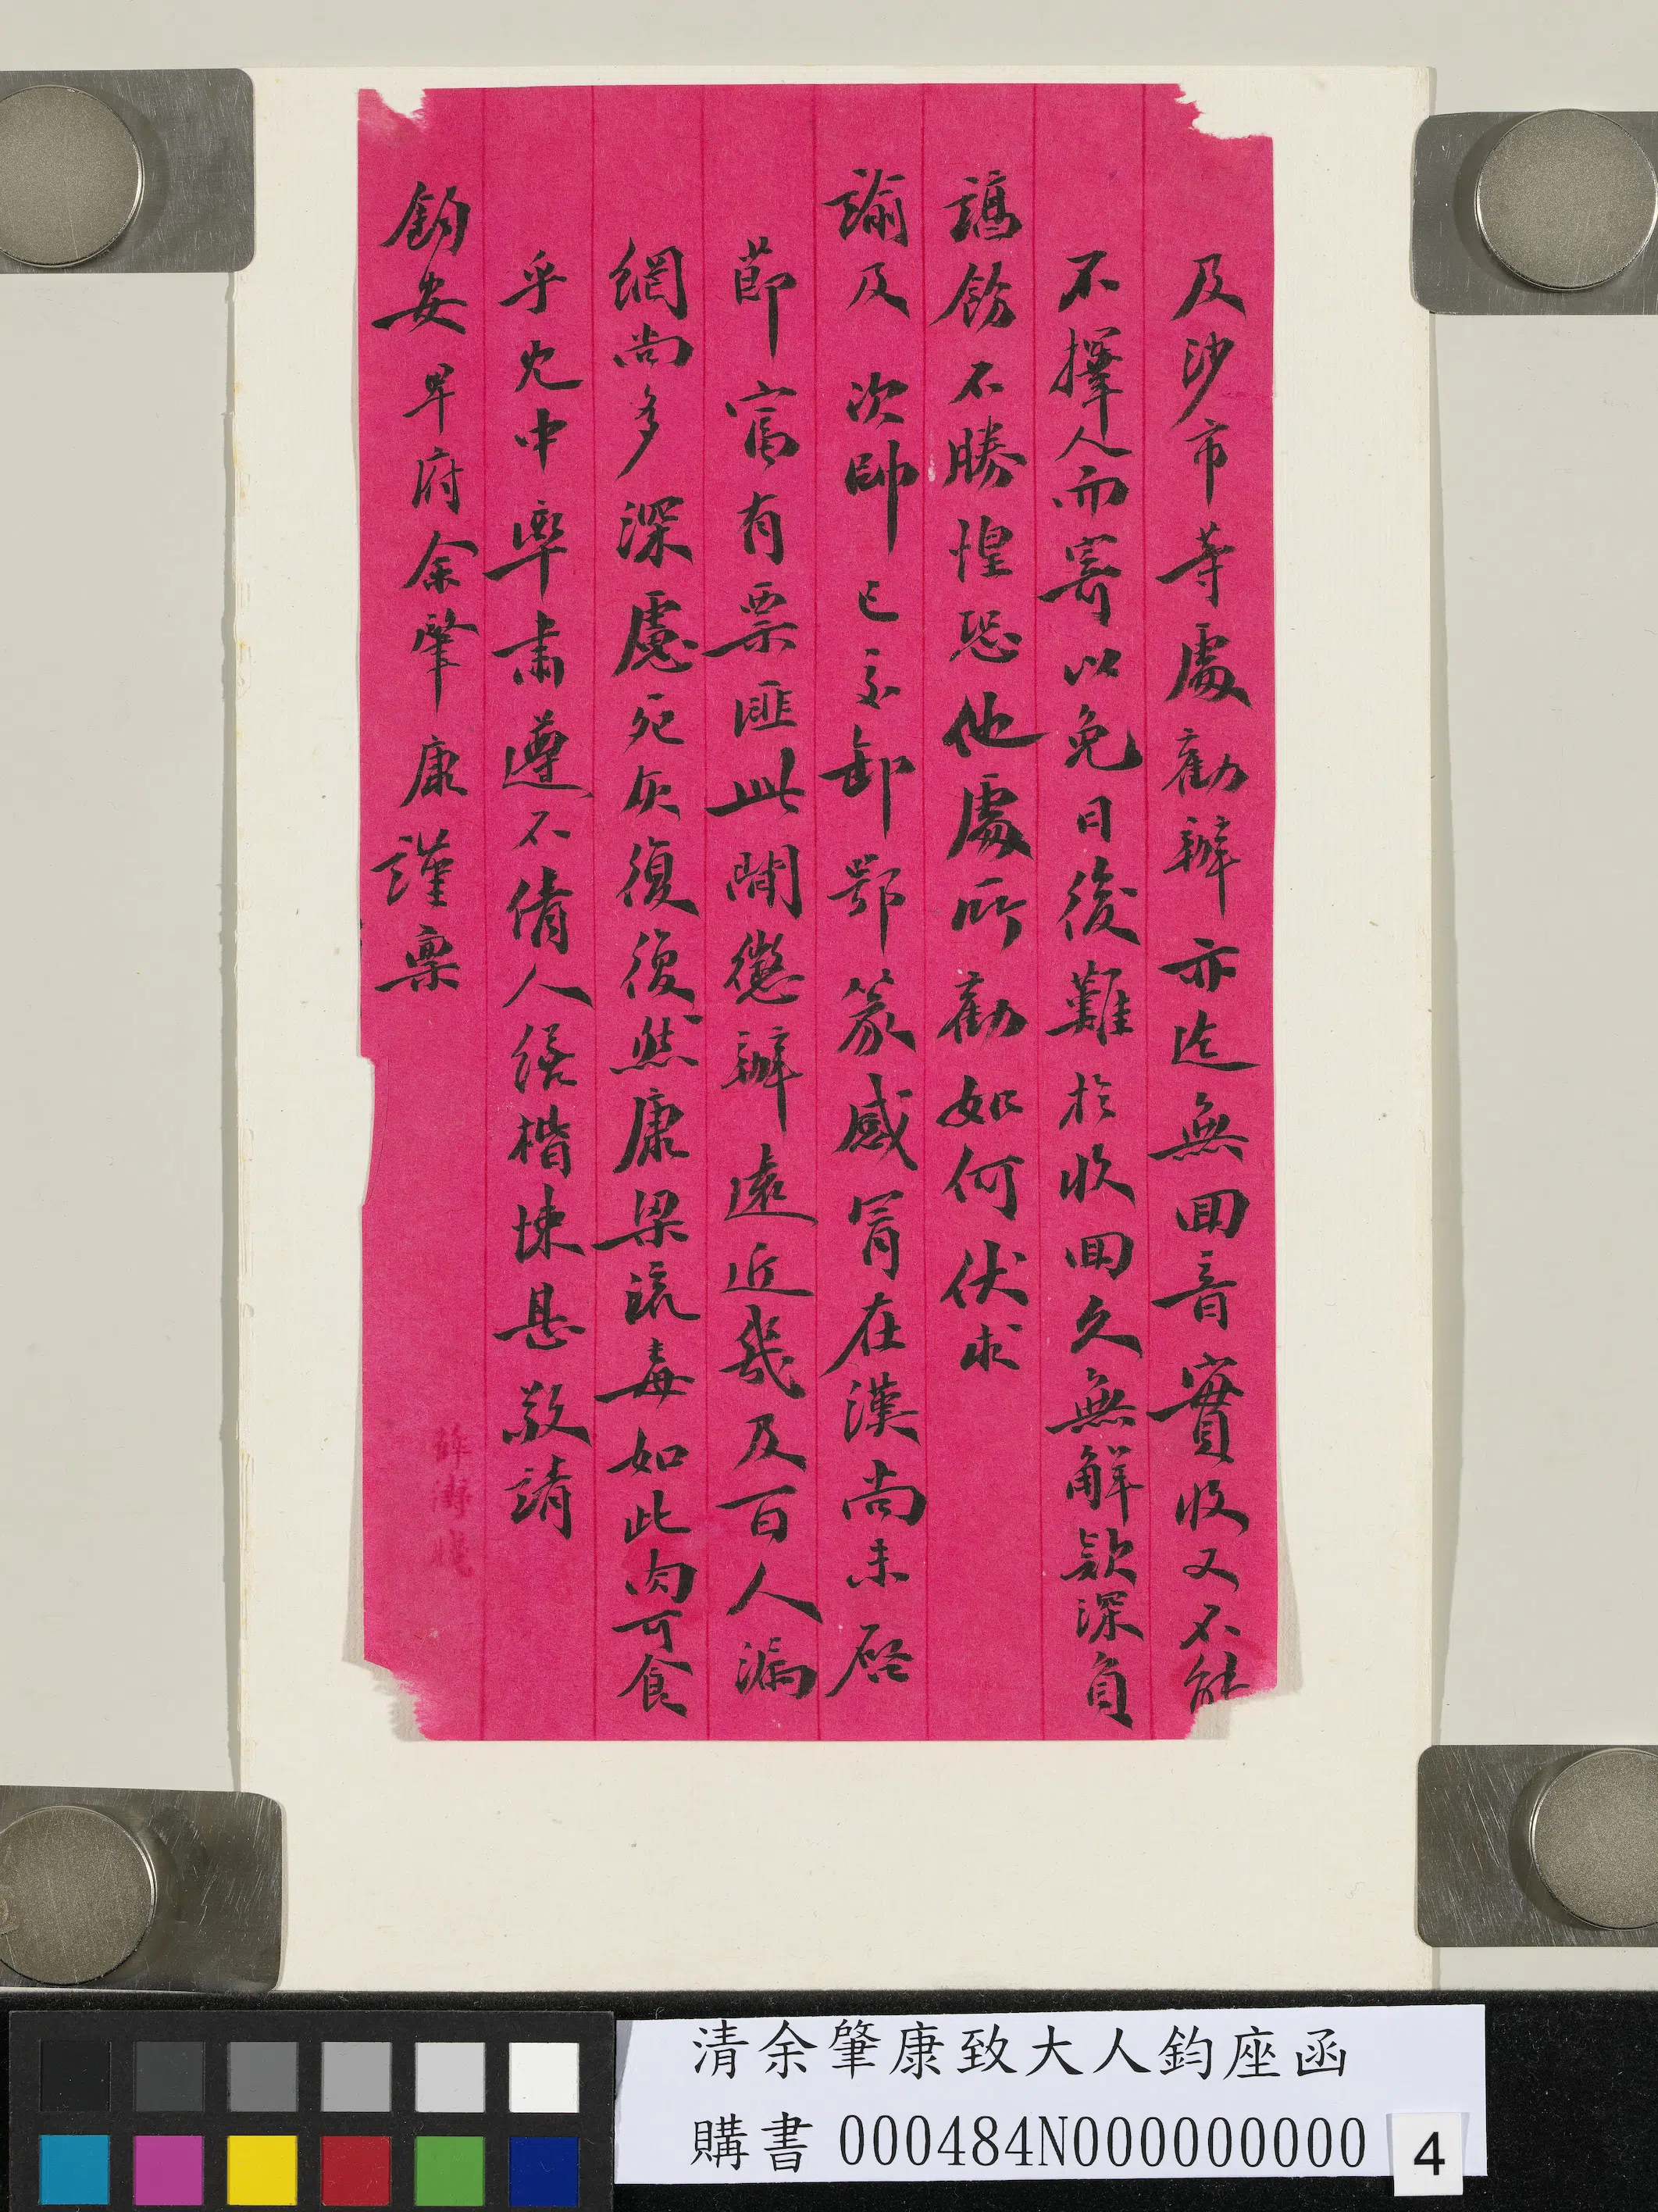 及沙市等處勸辦亦迄無回音實收又不能
不擇人而寄以免日後難於收回久無解款深負
諉飭不勝惶恐他處所勸如何伏求
諭及次帥已交卸鄂篆感冒在漢尚未啟
節富有票匪此間懲辦遠近幾及百人漏
網尚多深慮死灰復復然康梁流毒如此肉可食
乎允中率肅遵不倩人繕楷悚息敬請
鈞安卑府余肇康謹稟
清余肇康致大人鈞座函
購書 000484N000000000
4